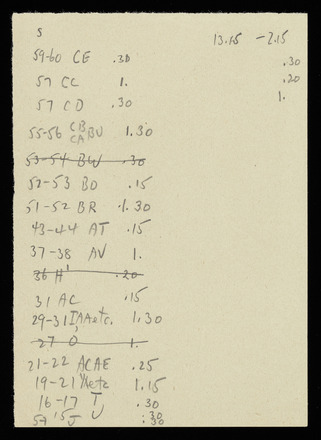 S
13.15 -2.15
59-60 CE .30 .30
57 CC 1. .20
57 CD .30 1.
55-56 CB CA BU 1.30
53-54 BW .30
52-53 BD .15
51-52 BR 1.30
43-44 AT .15
37-38 AV 1.
36 H' .20
31 AC .15
29-31 IAA etc. 1.30
27 O 1.
21-22 ACAE .25
19-21 1.15
16-17 T .30
15 U .30
57 J .30